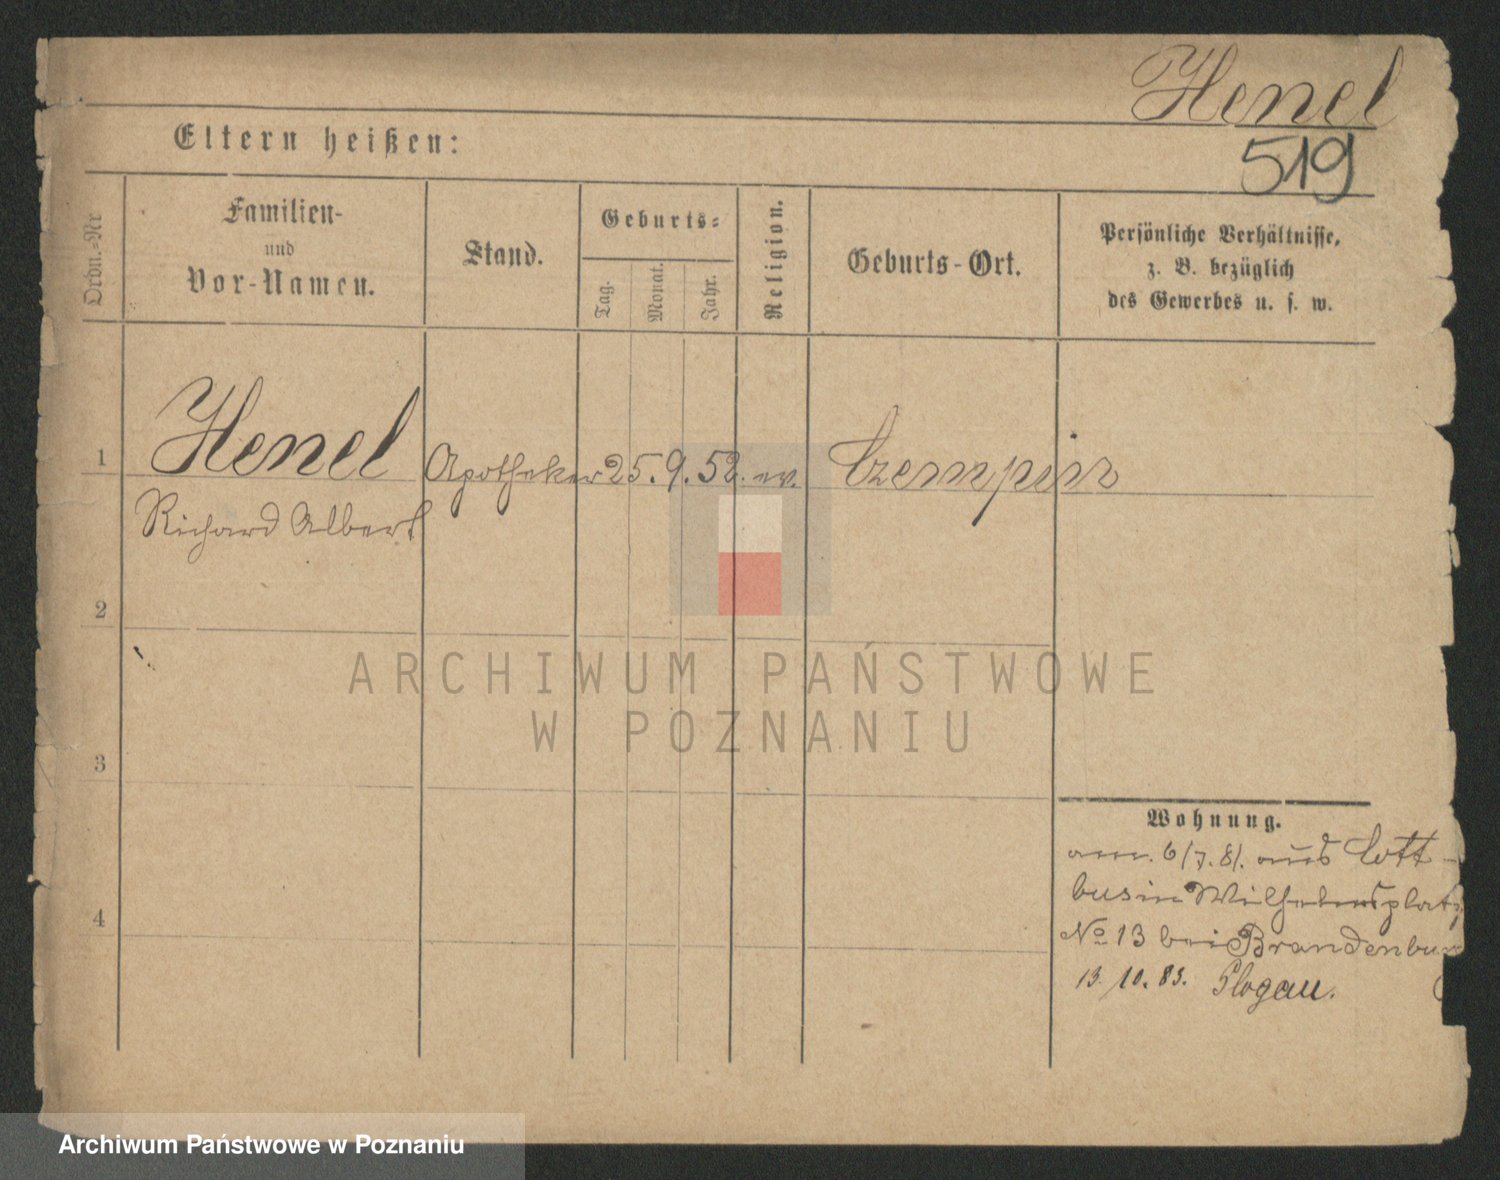 Henel
519
Eltern heißen:
Ordn.-Nr
Familien-
und
Vor-Namen.
Stand.
Geburts-
Tag.
Monat.
Jahr.
Religion.
Geburts-Ort.
Persönliche Verhältnisse,
z. B. bezüglich
des Gewerbes u. s. w.
1 Henel Apotheker 25. 9. 52. ev. Czempin
Richard Albert
2
3
4
Wohnung.
am. 6/7. 81. aus Cott-
bus in Wilhelmsplatz
No 13 bei Brandenbur
13. 10. 83. Glogau.
ARCHIWUM PAŃSTWOWE
W POZNANIU
Archiwum Państwowe w Poznaniu